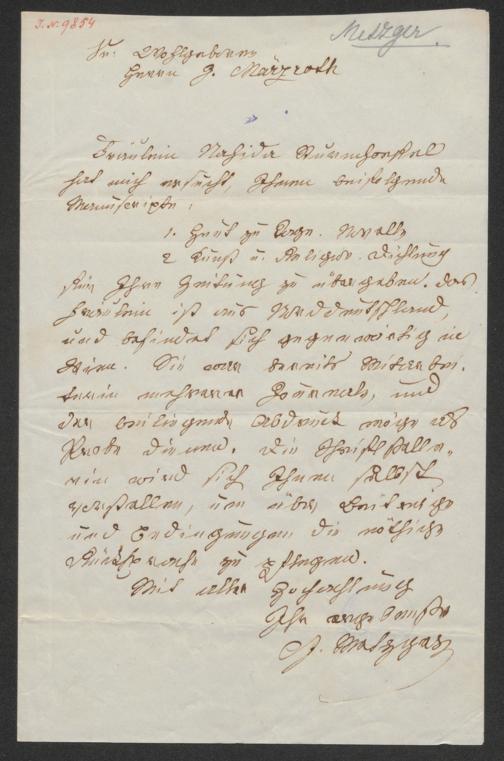 J. N. 9854
Metzger.
Sr. Wohlgeboren
Herrn J. Märzroth
Fräulein Nahida Sturmhoefel
hat mich ersucht, Ihnen beifolgende
Manuscripte:
1. Heut zu Tage. Novelle
2 Kunst u. Religion. Dichtung
für Ihre Zeitung zu übergeben. Das
Fräulein ist aus Norddeutschland,
und befindet sich gegenwärtig in
Wien. Sie war bereits Mitarbei-
terin mehrerer Journale, und
der beiliegende Abdruck möge als
Probe dienen. Die Schriftstelle-
rin wird sich Ihnen selbst
vorstellen, um über Beiträge
und Bedingungen die nöthige
Rücksprache zu pflegen.
Mit aller Hochachtung
Ihr ergebenster
J. Metzger